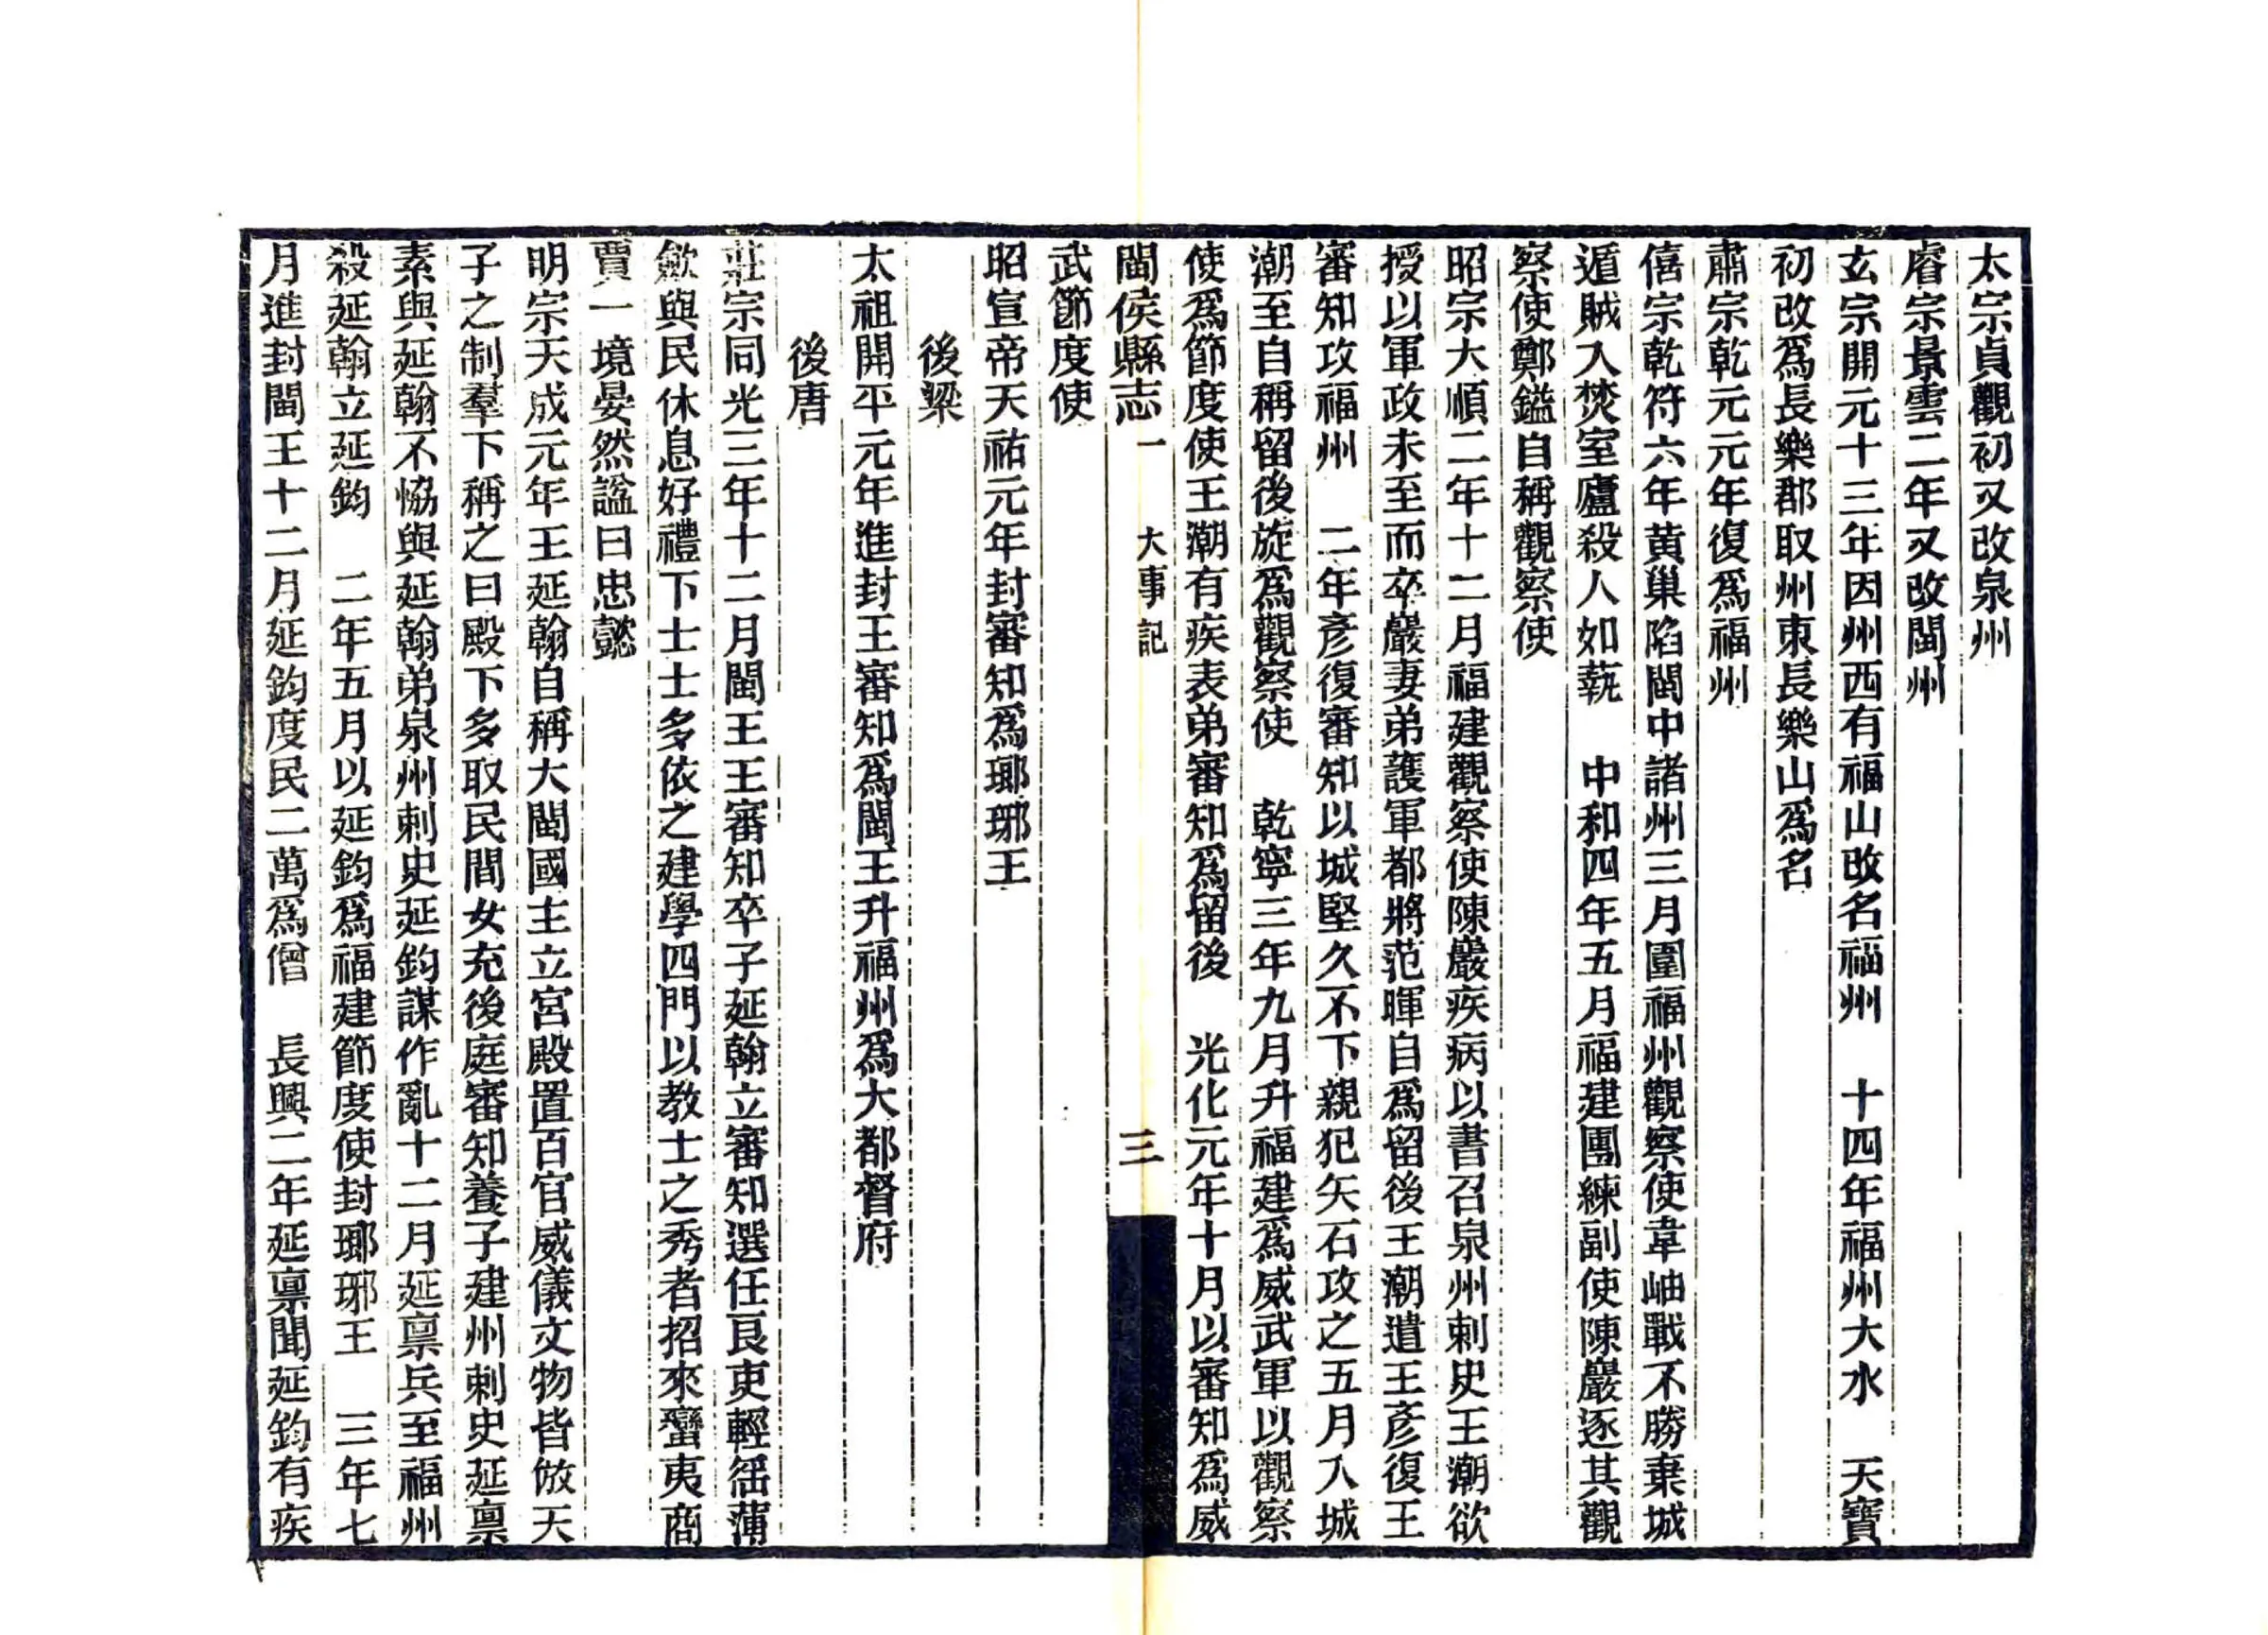 太宗貞觀初又改泉州
睿宗景雲二年又改閩州
玄宗開元十三年因州西有福山改名福州　十四年福州大水　天寶
初改爲長樂郡取州東長樂山爲名
肅宗乾元元年復爲福州
僖宗乾符六年黃巢陷閩中諸州三月圍福州觀察使韋岫戰不勝棄城
遁賊入焚室廬殺人如蓺　中和四年五月福建團練副使陳巖逐其觀
察使鄭鎰自稱觀察使
昭宗大順二年十二月福建觀察使陳巖疾病以書召泉州刺史王潮欲
授以軍政未至而卒巖妻弟護軍都將范暉自爲留後王潮遣王彥復王
審知攻福州　二年彥復審知以城堅久不下親犯矢石攻之五月入城
潮至自稱留後旋爲觀察使　乾寧三年九月升福建爲威武軍以觀察
使爲節度使王潮有疾表弟審知爲留後　光化元年十月以審知爲威
閩侯縣志　一　大事記　三
武節度使
昭宣帝天祐元年封審知爲瑯琊王
後梁
太祖開平元年進封王審知爲閩王升福州爲大都督府
後唐
莊宗同光三年十二月閩王王審知卒子延翰立審知選任良吏輕徭薄
歛與民休息好禮下士士多依之建學四門以教士之秀者招來蠻夷商
賈一境晏然諡曰忠懿
明宗天成元年王延翰自稱大閩國主立宮殿置百官威儀文物皆倣天
子之制羣下稱之曰殿下多取民間女充後庭審知養子建州刺史延稟
素與延翰不恊與延翰弟泉州刺史延鈞謀作亂十二月延稟兵至福州
殺延翰立延鈞　二年五月以延鈞爲福建節度使封瑯琊王　三年七
月進封閩王十二月延鈞度民二萬爲僧　長興二年延稟聞延鈞有疾